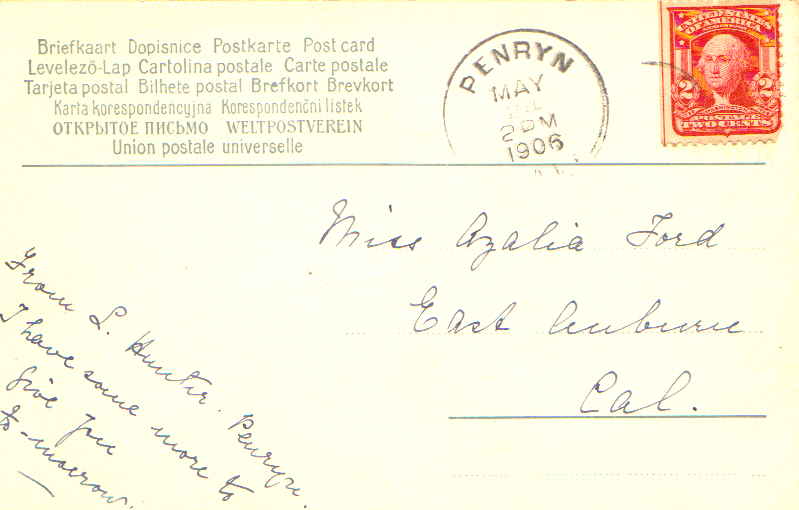 Briefkaart Dopisnice Postkarte Post card
Levelező-Lap Cartolina postale Carte postale
Tarjeta postal Bilhete postal Brefkort Brevkort
Karta korespondencyjna Korespondenční lístek
ОТКРЫТОЕ ПИСЬМО WELTPOSTVEREIN
Union postale universelle
PENRYN
MAY
2 PM
1906
UNITED STATES
OF AMERICA
2 2
POSTAGE
TWO CENTS
Miss Azalia Ford
East Auburn
Cal.
From L. Hunter. Penryn.
I have some more to
give you
to-morrow.